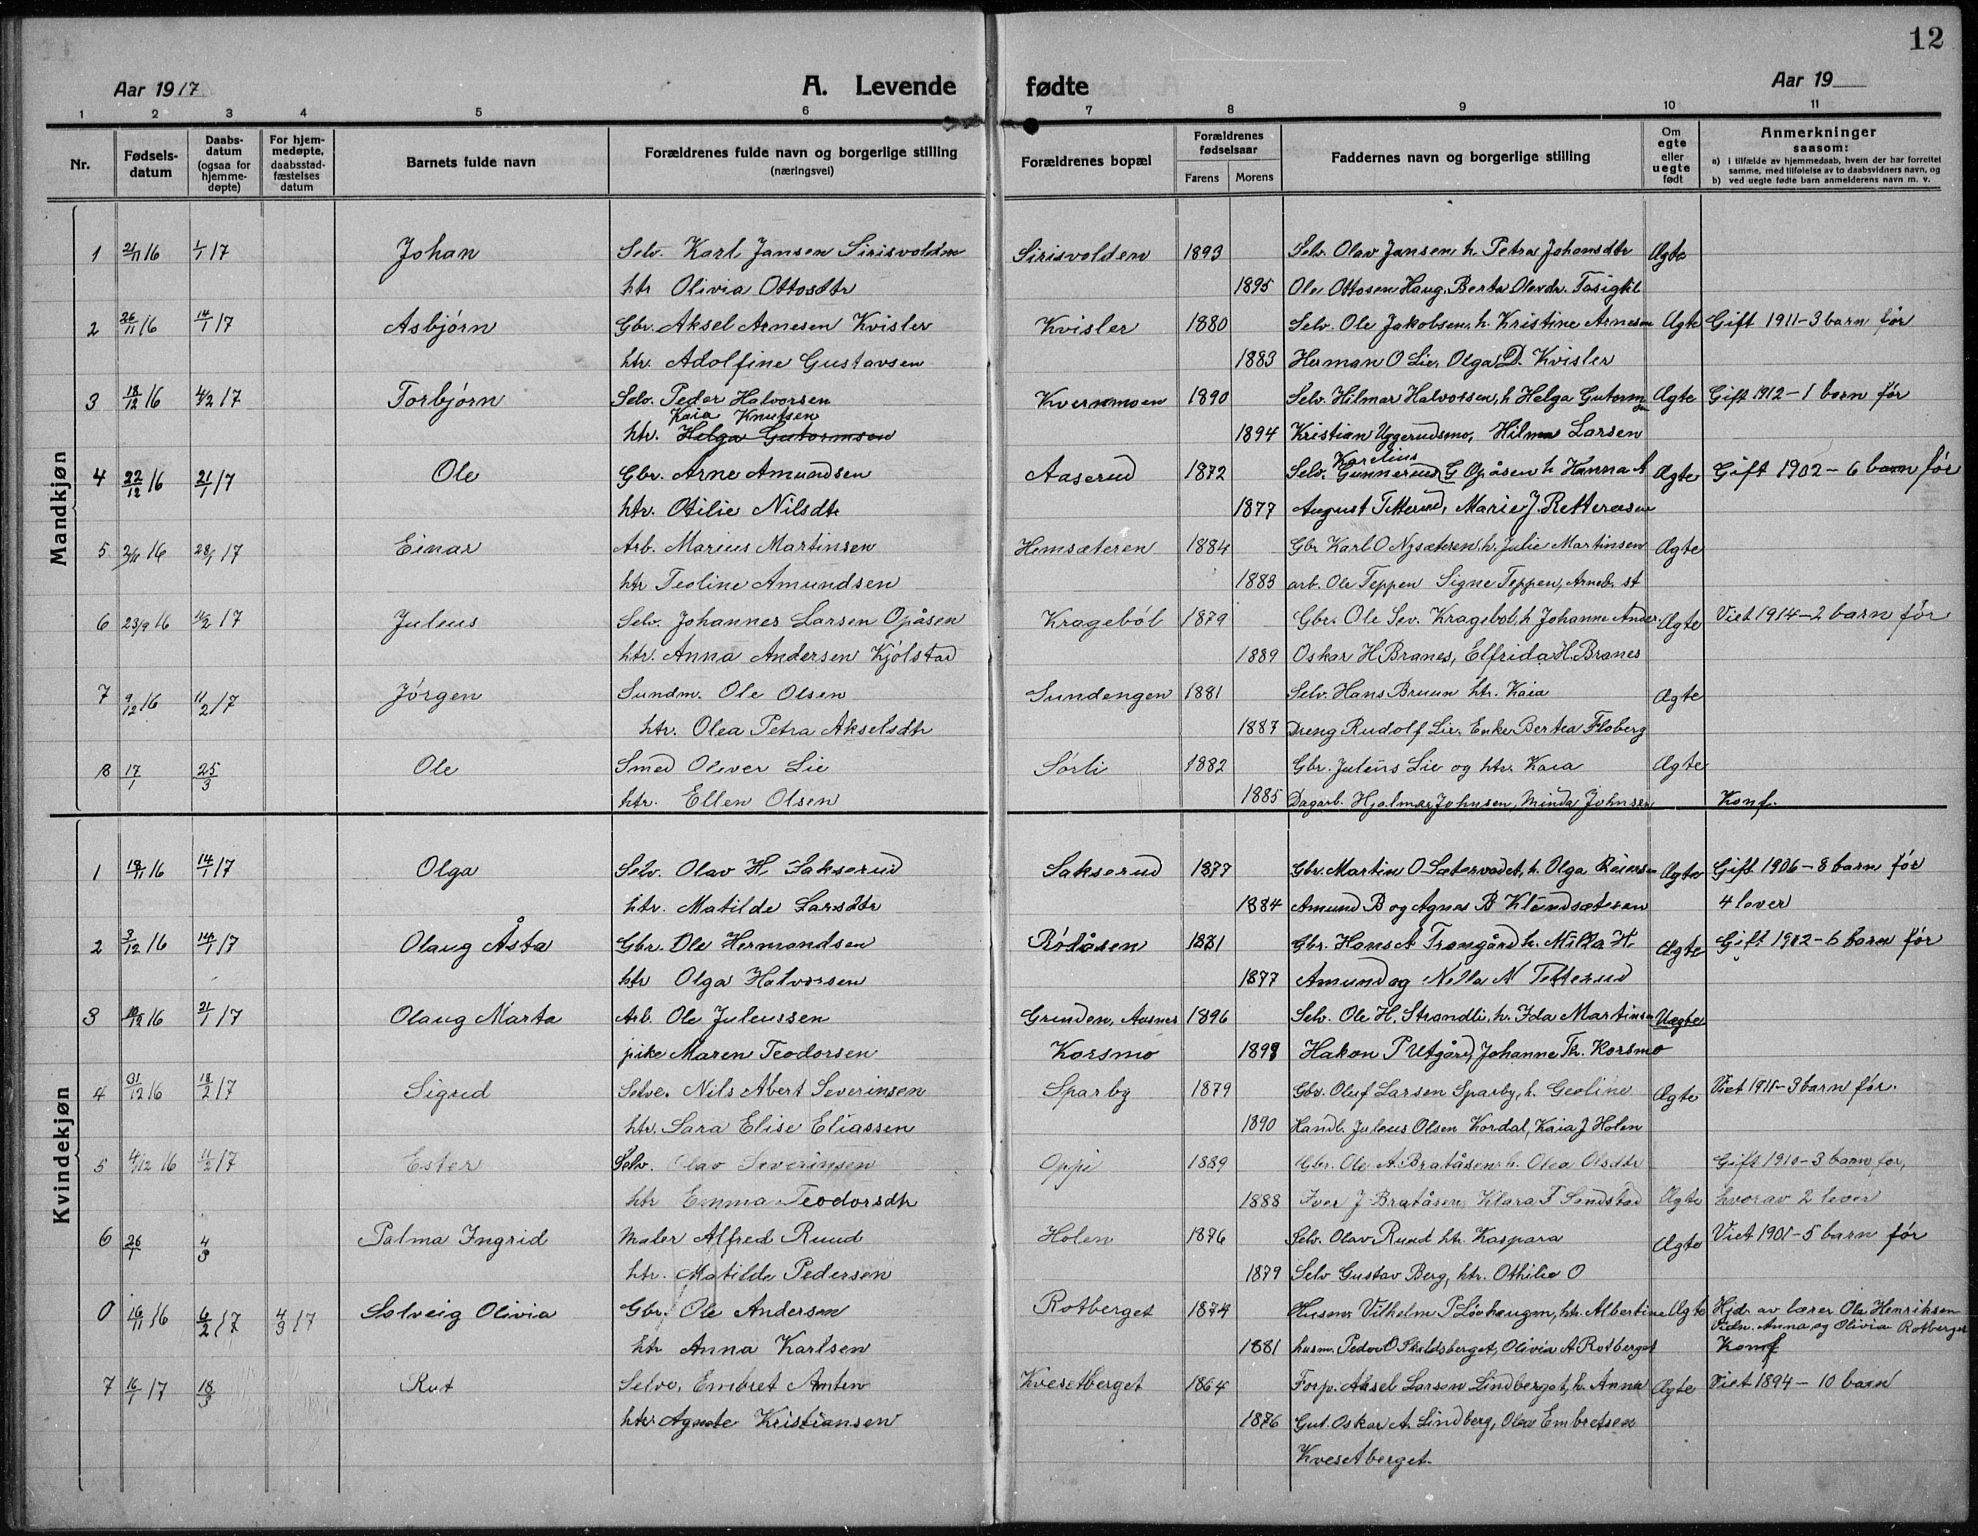 12
Aar 1917 A. Levende fødte Aar 19
1 2 3 4 5 6 7 8 9 10 11
Nr. Fødsels-datum Daabs-datum (ogsaa for hjemme-døpte) For hjem-medøpte, daabsstad-fæstelses datum Barnets fulde navn Forældrenes fulde navn og borgerlige stilling (næringsvei) Forældrenes bopæl Forældrenes fødselsaar Farens Morens Faddernes navn og borgerlige stilling Om egte eller uegte født Anmerkninger saasom:
a) i tilfælde av hjemmedaab, hvem der har forrettet samme, med tilføielse av to daabsvidners navn, og
b) ved uegte fødte barn anmelderens navn m. v.
Mandkjøn
1 21/11 16 1/1 17 Johan Selv. Karl Jansen Sirisvolden Sirisvolden 1893 Selv. Olav Jansen h. Petra Johansdtr Ægte
htr Olivia Ottosdtr 1895 Ole Ottosen Haug. Berta Olevdr.
2 26/11 16 14/1 17 Asbjørn Gbr. Aksel Arnesen Kvisler Kvisler 1880 Selv. Ole Jakobsen, h. Kristine Arnesen Ægte Gift 1911-3 barn før
htr. Adolfine Gustavsen 1883 Herman O Lie, Olga D. Kvisler
3 18/12 16 4/2 17 Torbjørn Selv. Peder Halvorsen Kvernmoen 1890 Selv. Hilmar Halvorsen, h Helga Gutormsen Ægte Gift 1912 - 1 barn før
Kaia Knutsen
htr. Helga Gutormsen 1894 Kristian Uggerudsmo, Hilma Larsen
4 22/12 16 21/1 17 Ole Gbr. Arne Amundsen Aaserud 1872 Selv. Gunnerud Karelius G Opåsen h Hanna A Ægte Gift 1902 - 6 barn før
htr. Otilie Nilsdtr 1877 August Titterud, Marie J. Retteraasen
5 2/11 16 28/1 17 Einar Arb. Marius Martinsen Hemsæteren 1884 Gbr Karl O Nysæteren, h. Julie Martinsen Ægte
htr Teoline Amundsen 1883 arb. Ole Teppen Signe Teppen, Arneb. st
6 23/9 16 4/2 17 Juleus Selv. Johannes Larsen Opåsen Kragebøl 1879 Gbr. Ole Sev. Kragebøl, h Johanne Ander. Ægte Viet 1914-2 barn før
htr. Anna Andersen Kjølstad 1889 Oskar H Branes, Elfrida H. Branes
7 9/12 16 11/2 17 Jørgen Sundm. Ole Olsen Sundengen 1881 Selv. Hans Bruun htr. Kaia Ægte
htr. Olea Petra Akselsdtr 1887 Dreng Rudolf Lie, Enke Bertea Floberg
8 17/1 25/3 Ole Smed Olever Lie Sørli 1882 Gbr. Juleus Lie og htr. Kaia Ægte
htr. Ellen Olsen 1885 Dagarb. Hjalmar Johnsen, Minda Johnsen Konf.
Kvindekjøn
1 19/11 16 14/1 17 Olga Selv. Olav H. Sakserud Sakserud 1877 Gbr. Martin O Sætervadet, h. Olga Reiersen Ægte Gift 1906 - 8 barn før
htr. Matilde Larsdtr 1884 Amund B og Agnes B Klundsæteren 4 lever
2 3/12 16 14/1 17 Olaug Åsta Gbr. Ole Hermandsen Rødåsen 1871 Gbr. Hans A Tramgård h. Milla H. Ægte Gift 1902 - 6 barn før
htr Olga Halvorsen 1877 Amund og Nella N Tetterud
3 10/12 16 21/1 17 Olaug Marta Arb. Ole Juleussen Grinden, Aasnes 1896 Selv. Ole H. Strandli, h. Ida Martinsen Uægte
pike Maren Teodorsen Korsmo 1898 Hakon P Utgård, Johanne Th. Korsmo
4 31/12 16 18/2 17 Sigrid Selve. Nils Abert Severinsen Sparby 1879 Gbr. Oluf Larsen Sparby, h. Geoline Ægte Viet 1915-3 barn før.
htr. Sara Elise Eliassen 1890 Handb Juleus Olsen Kordal, Kaia J Holen
5 4/12 16 11/2 17 Ester Selv. Olav Severinsen Oppi 1889 Gbr. Ole A. Bratåsen h. Olea Olsdtr Gift 1910-3 barn før,
htr Emma Teodorsdtr 1888 Iver J Bratåsen, Klara F Sandstad Ægte hvorav 2 lever
6 26/1 4/3 Palma Ingrid Maler Alfred Ruud Holen 1876 Selv. Olav Ruud htr. Kaspara Ægte Viet 1901-5 barn før
htr. Matilde Pedersen 1879 Selv Gustav Berg, htr. Othilie O
0 16/11 16 6/2 17 4/3 17 Solveig Olivia Gbr. Ole Andersen Rotberget 1874 Husm. Vilhelm P Løvhaugen, htr. Albertine Ægte Hjd. av lærer Ole Henriksen
Vidn. Anna og Olivia Rotberget
htr Anna Karlsen 1881 husm. Peder O Skaldsberget, Olivia A Rotberget Konf
7 16/1 17 18/3 Rut Selve. Embret Amten Kvesetberget 1864 Forp. Aksel Larsen Lindberget, h. Anna Ægte Viet 1894 - 10 barn
htr Agnete Kristiansen 1876 Gut. Oskar A. Lindberg, Olea Embretsen
Kvesetberget.